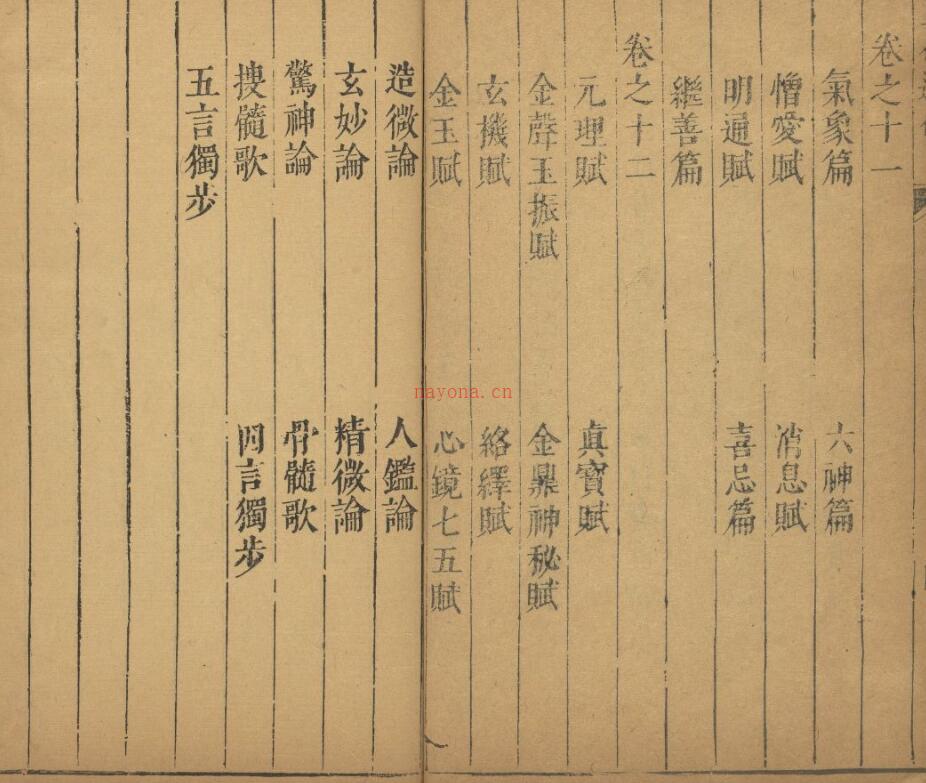 卷之十一
氣象篇 六神篇
憎愛賦 消息賦
明通賦 喜忌篇
繼善篇
卷之十二
元理賦 真寶賦
金聲玉振賦 金鼎神秘賦
玄機賦 絡繹賦
金玉賦 心鏡七五賦
造微論 人鑑論
玄妙論 精微論
驚神論 骨髓歌
搜髓歌 四言獨步
五言獨步
nayona.cn